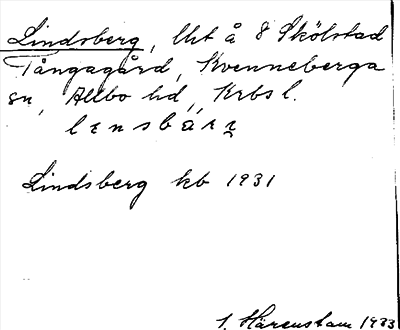 Lindsberg, lht å 8 Skölstad
Tångagård, Kvenneberga
sn, Allbo hd, Krbs l.
Lindsberg kb 1931
S. Härenstam 1933